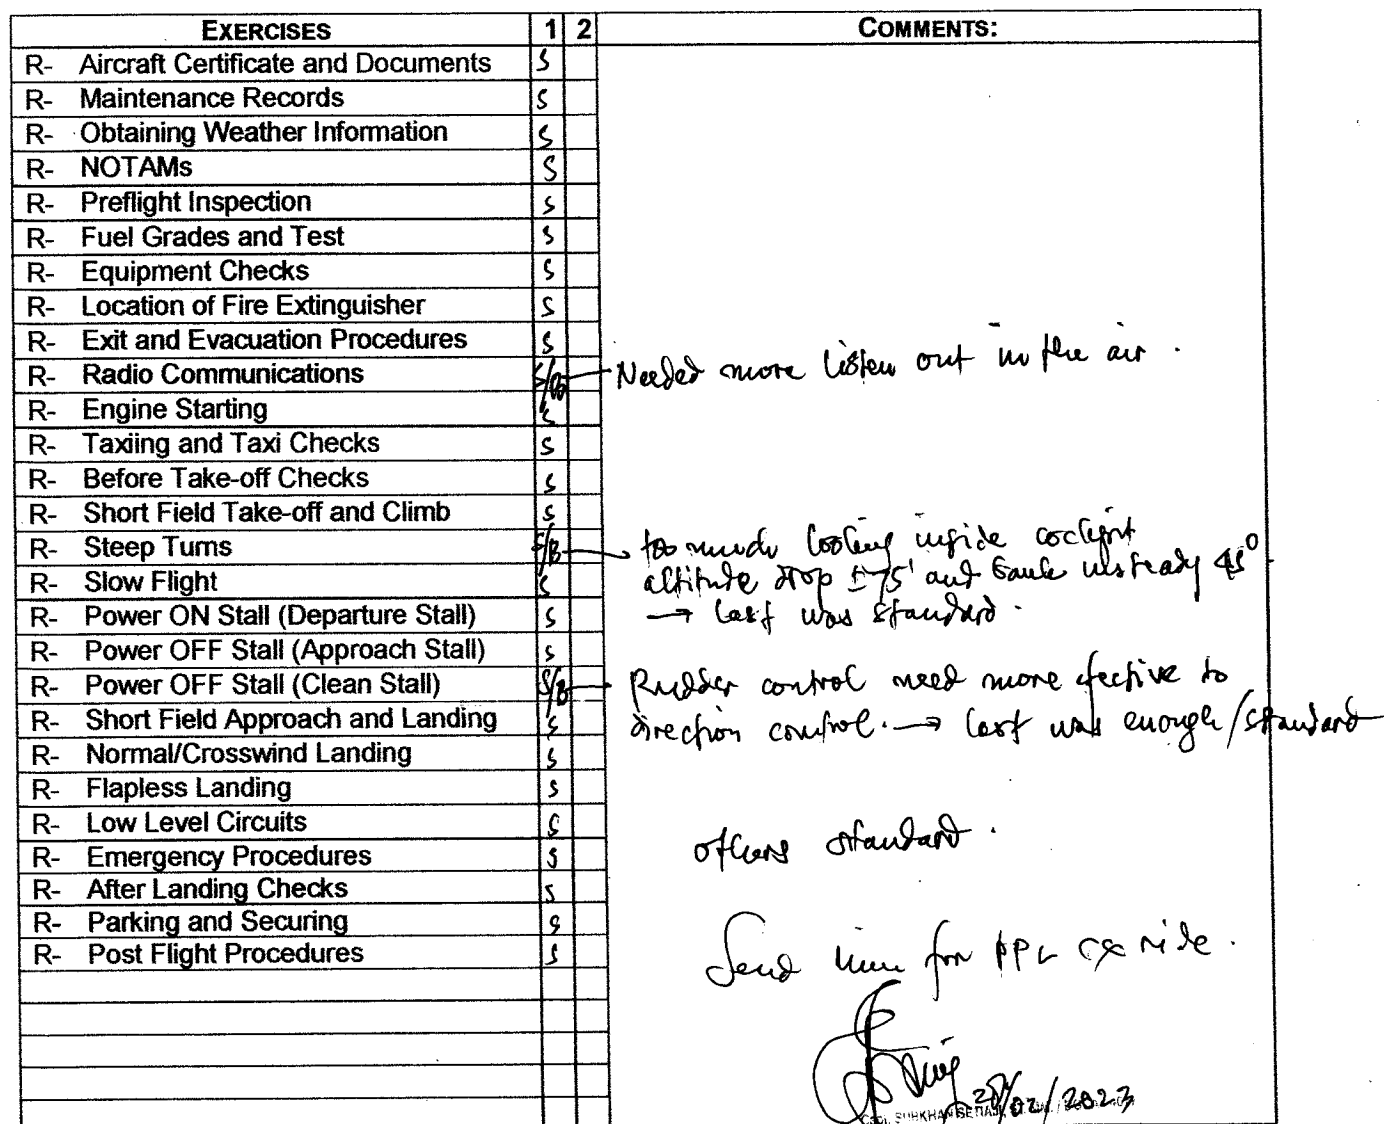 EXERCISES 1 2 COMMENTS:
R- Aircraft Certificate and Documents S
R- Maintenance Records S
R- Obtaining Weather Information S
R- NOTAMs S
R- Preflight Inspection S
R- Fuel Grades and Test S
R- Equipment Checks S
R- Location of Fire Extinguisher S
R- Exit and Evacuation Procedures S
R- Radio Communications S/B Needed more listen out in the air.
R- Engine Starting S
R- Taxiing and Taxi Checks S
R- Before Take-off Checks S
R- Short Field Take-off and Climb S
R- Steep Turns S/B too much looking inside cockpit
altitude drop ±75' and bank unsteady 45°
R- Slow Flight S
→ last was standard.
R- Power ON Stall (Departure Stall) S
R- Power OFF Stall (Approach Stall) S
R- Power OFF Stall (Clean Stall) S/B Rudder control need more efective to
R- Short Field Approach and Landing S direction control. → last was enough/standard
R- Normal/Crosswind Landing S
R- Flapless Landing S
R- Low Level Circuits S
others standard.
R- Emergency Procedures S
R- After Landing Checks S
R- Parking and Securing S
R- Post Flight Procedures S
Send him for PPL cx ride.
28/02/2023